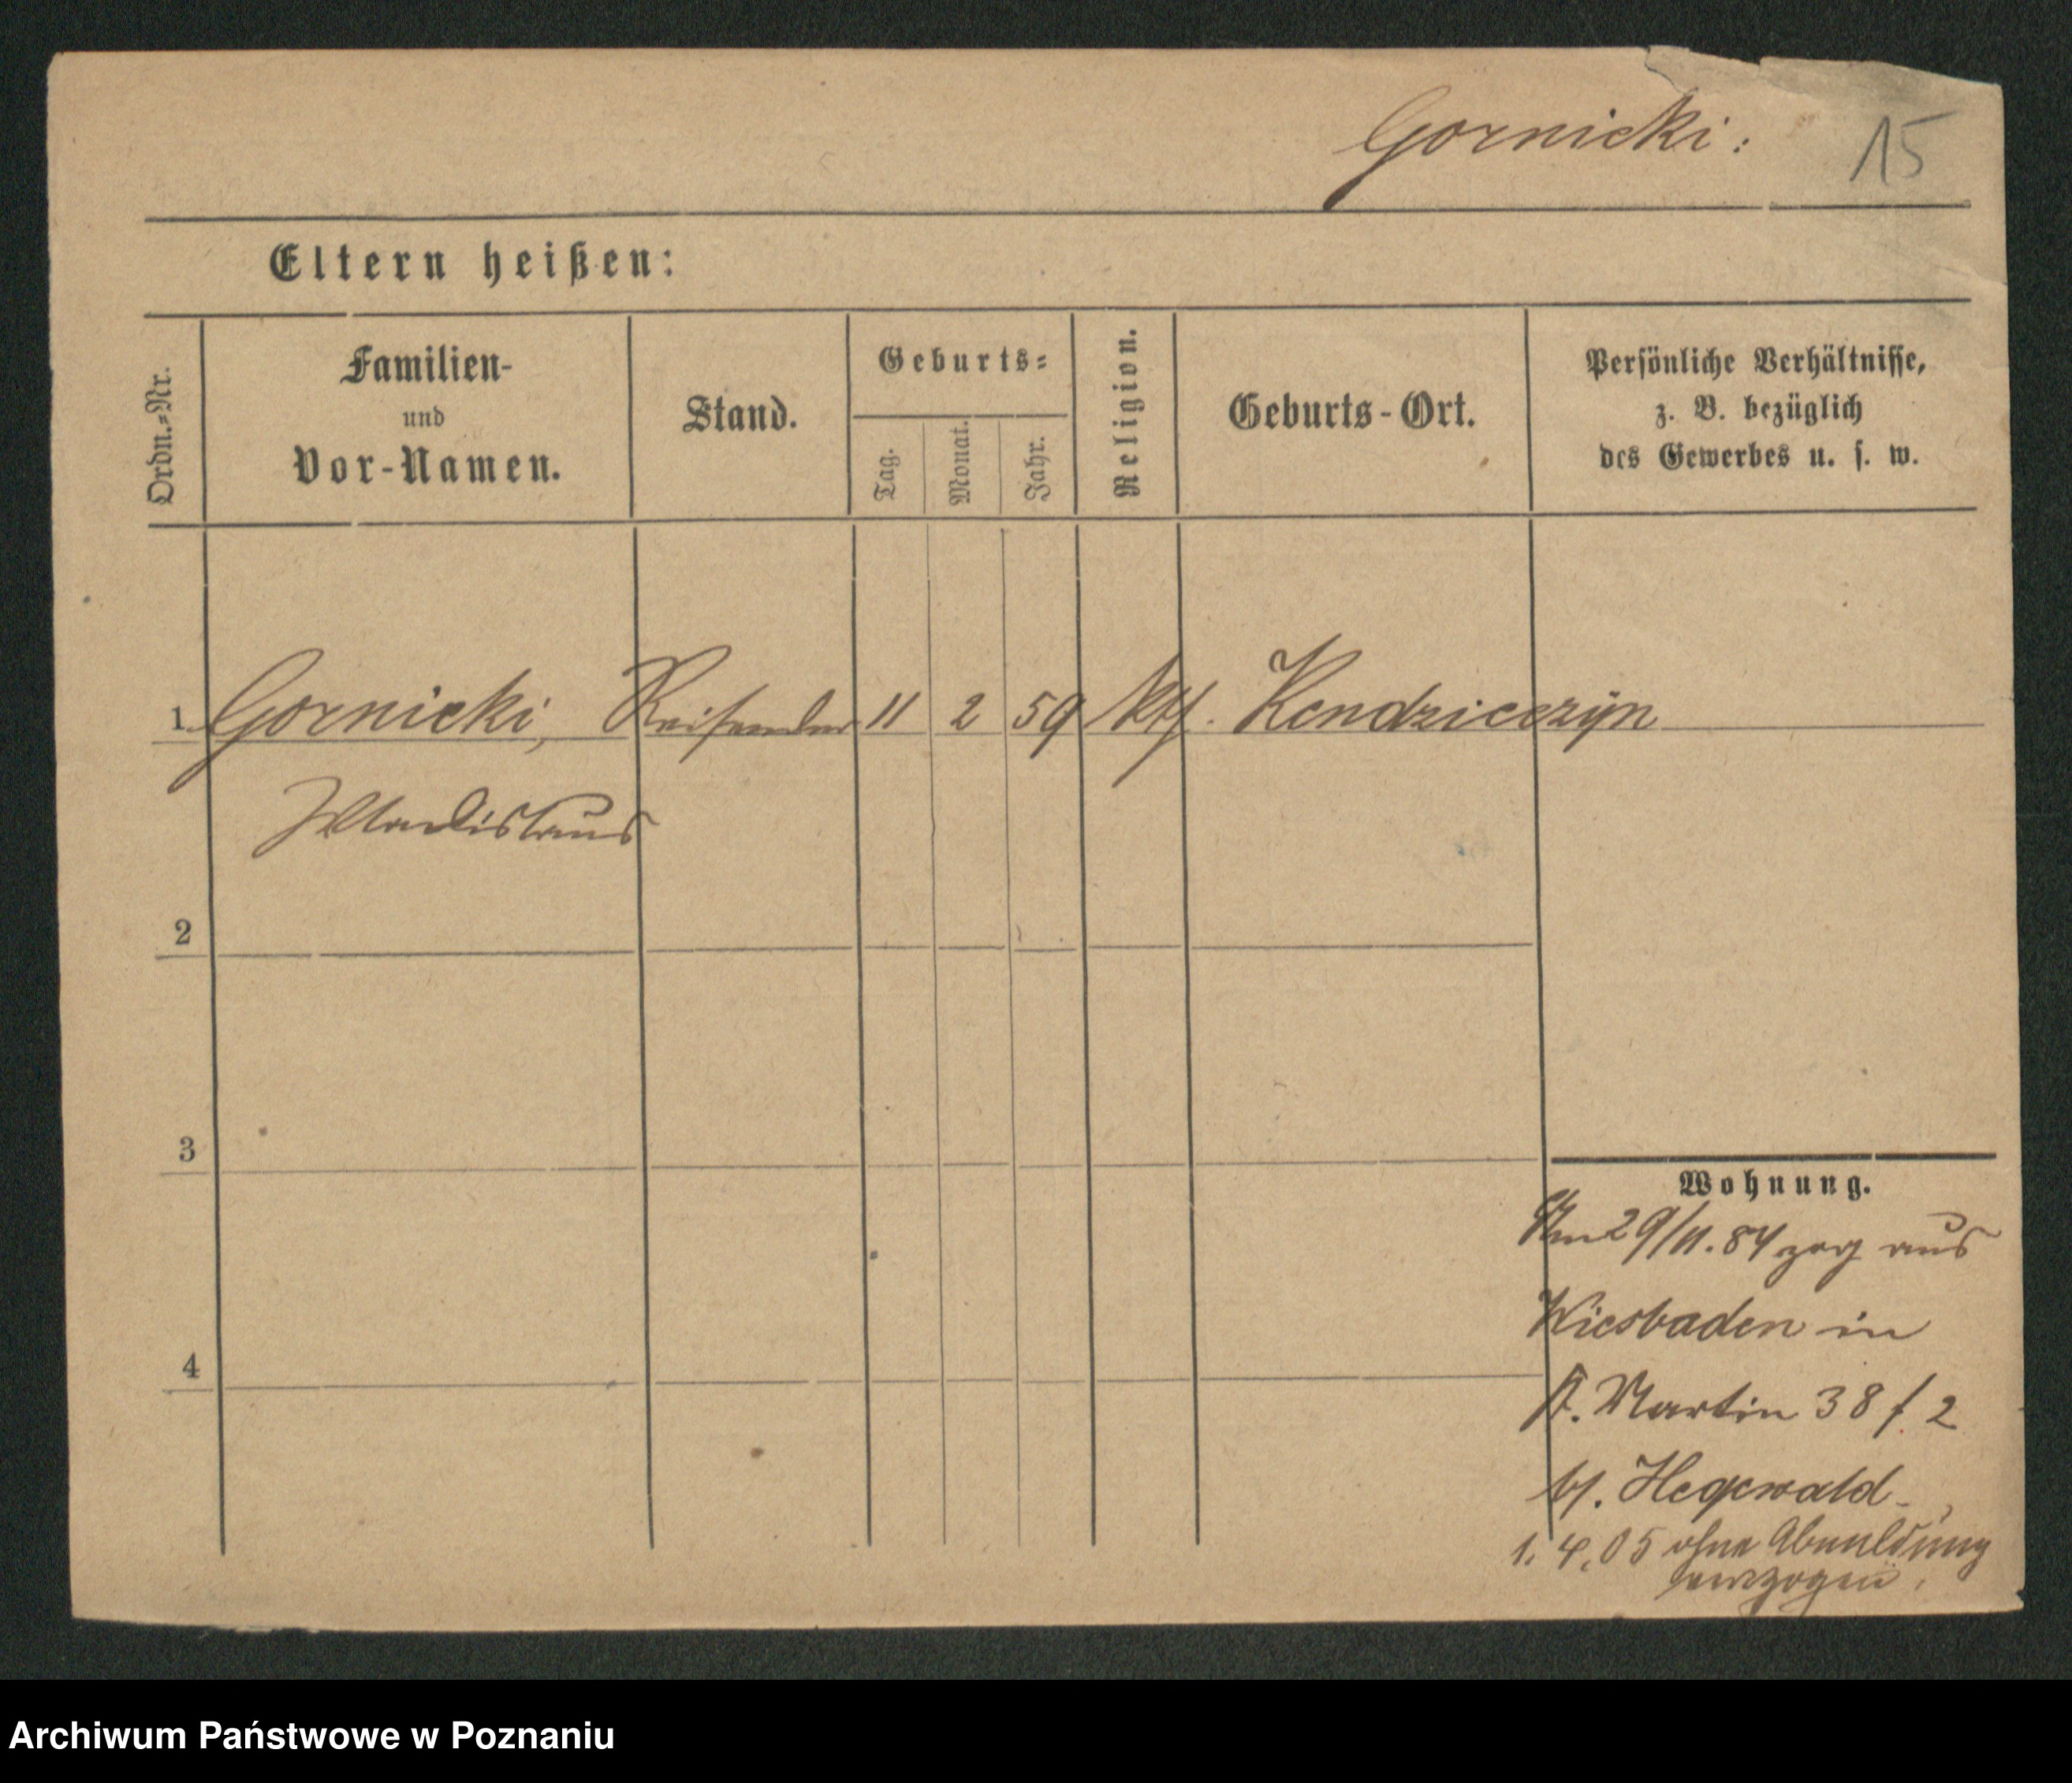 Gornicki:
15
Eltern heißen:
Ordn.-Nr.
Familien-
und
Vor-Namen.
Stand.
Geburts-
Tag.
Monat.
Jahr.
Religion.
Geburts-Ort.
Persönliche Verhältnisse,
z. B. bezüglich
des Gewerbes u. s. w.
1 Gornicki, Reisender 11 2 59 kth. Kendziedzyn
Wladislaus
2
3
4
Wohnung.
Am 29/11. 84 zog aus
Wiesbaden in
St. Martin 38 f 2
bei Hegewald
1. 4. 05 ohne Abmeldung
verzogen.
Archiwum Państwowe w Poznaniu